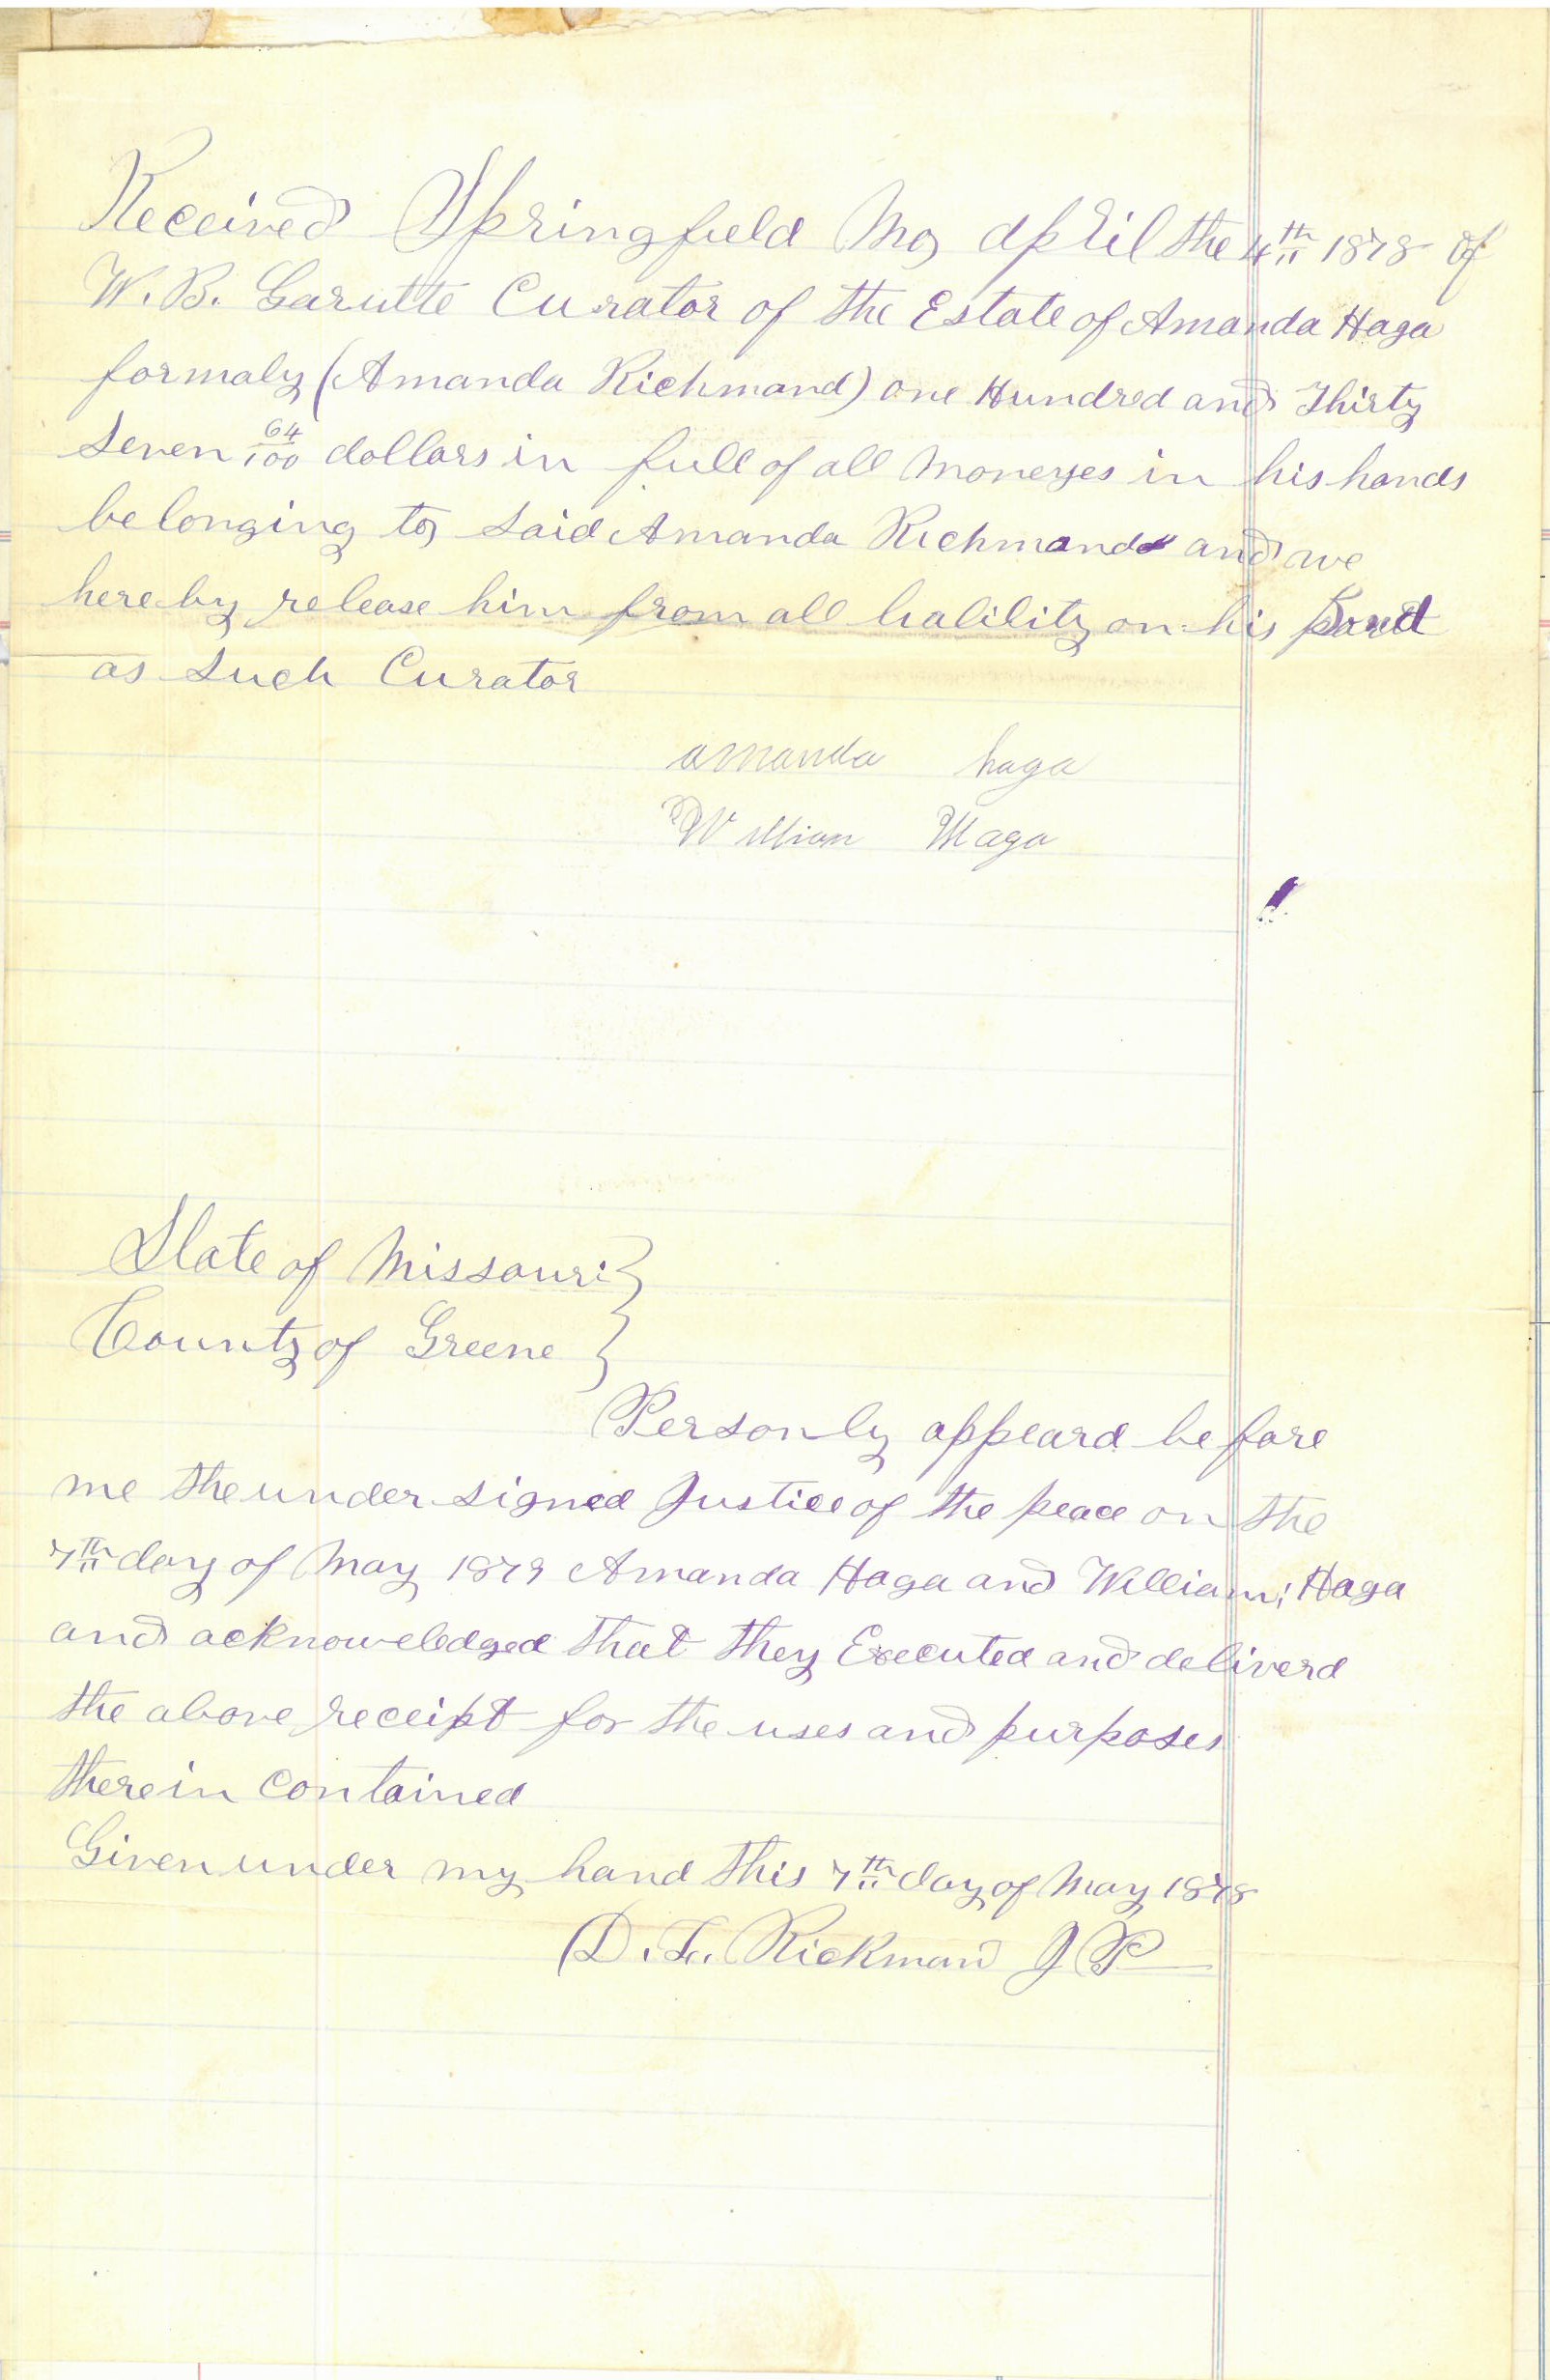 Received Springfield Mo, April the 4th 1878 of
W. B. Garutte Curator of the Estate of Amanda Haga
formaly (Amanda Richmand) one Hundred and Thirty
Seven 64/100 dollars in full of all moneyes in his hands
belonging to, Said Amanda Richmand and we
hereby release him from all lialility on his part
as Such Curator
amanda haga
William Haga
State of Missouri }
County of Greene }
Personly appeard before
me the undersigned Justice of the peace on the
7th day of May 1879 Amanda Haga and William Haga
and acknoweledged that they Executed and deliverd
the above receipt for the uses and purposes
therein contained
Given under my hand this 7th day of May 1878
D. L. Rickman J P